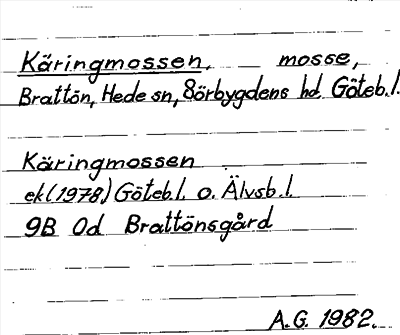 Käringmossen, mosse,
Brattön, Hede sn, Sörbygdens hd Göteb.l.
Käringmossen
ek (1978) Göteb.l. o. Älvsb.l.
9B 0d Brattönsgård
A.G. 1982.